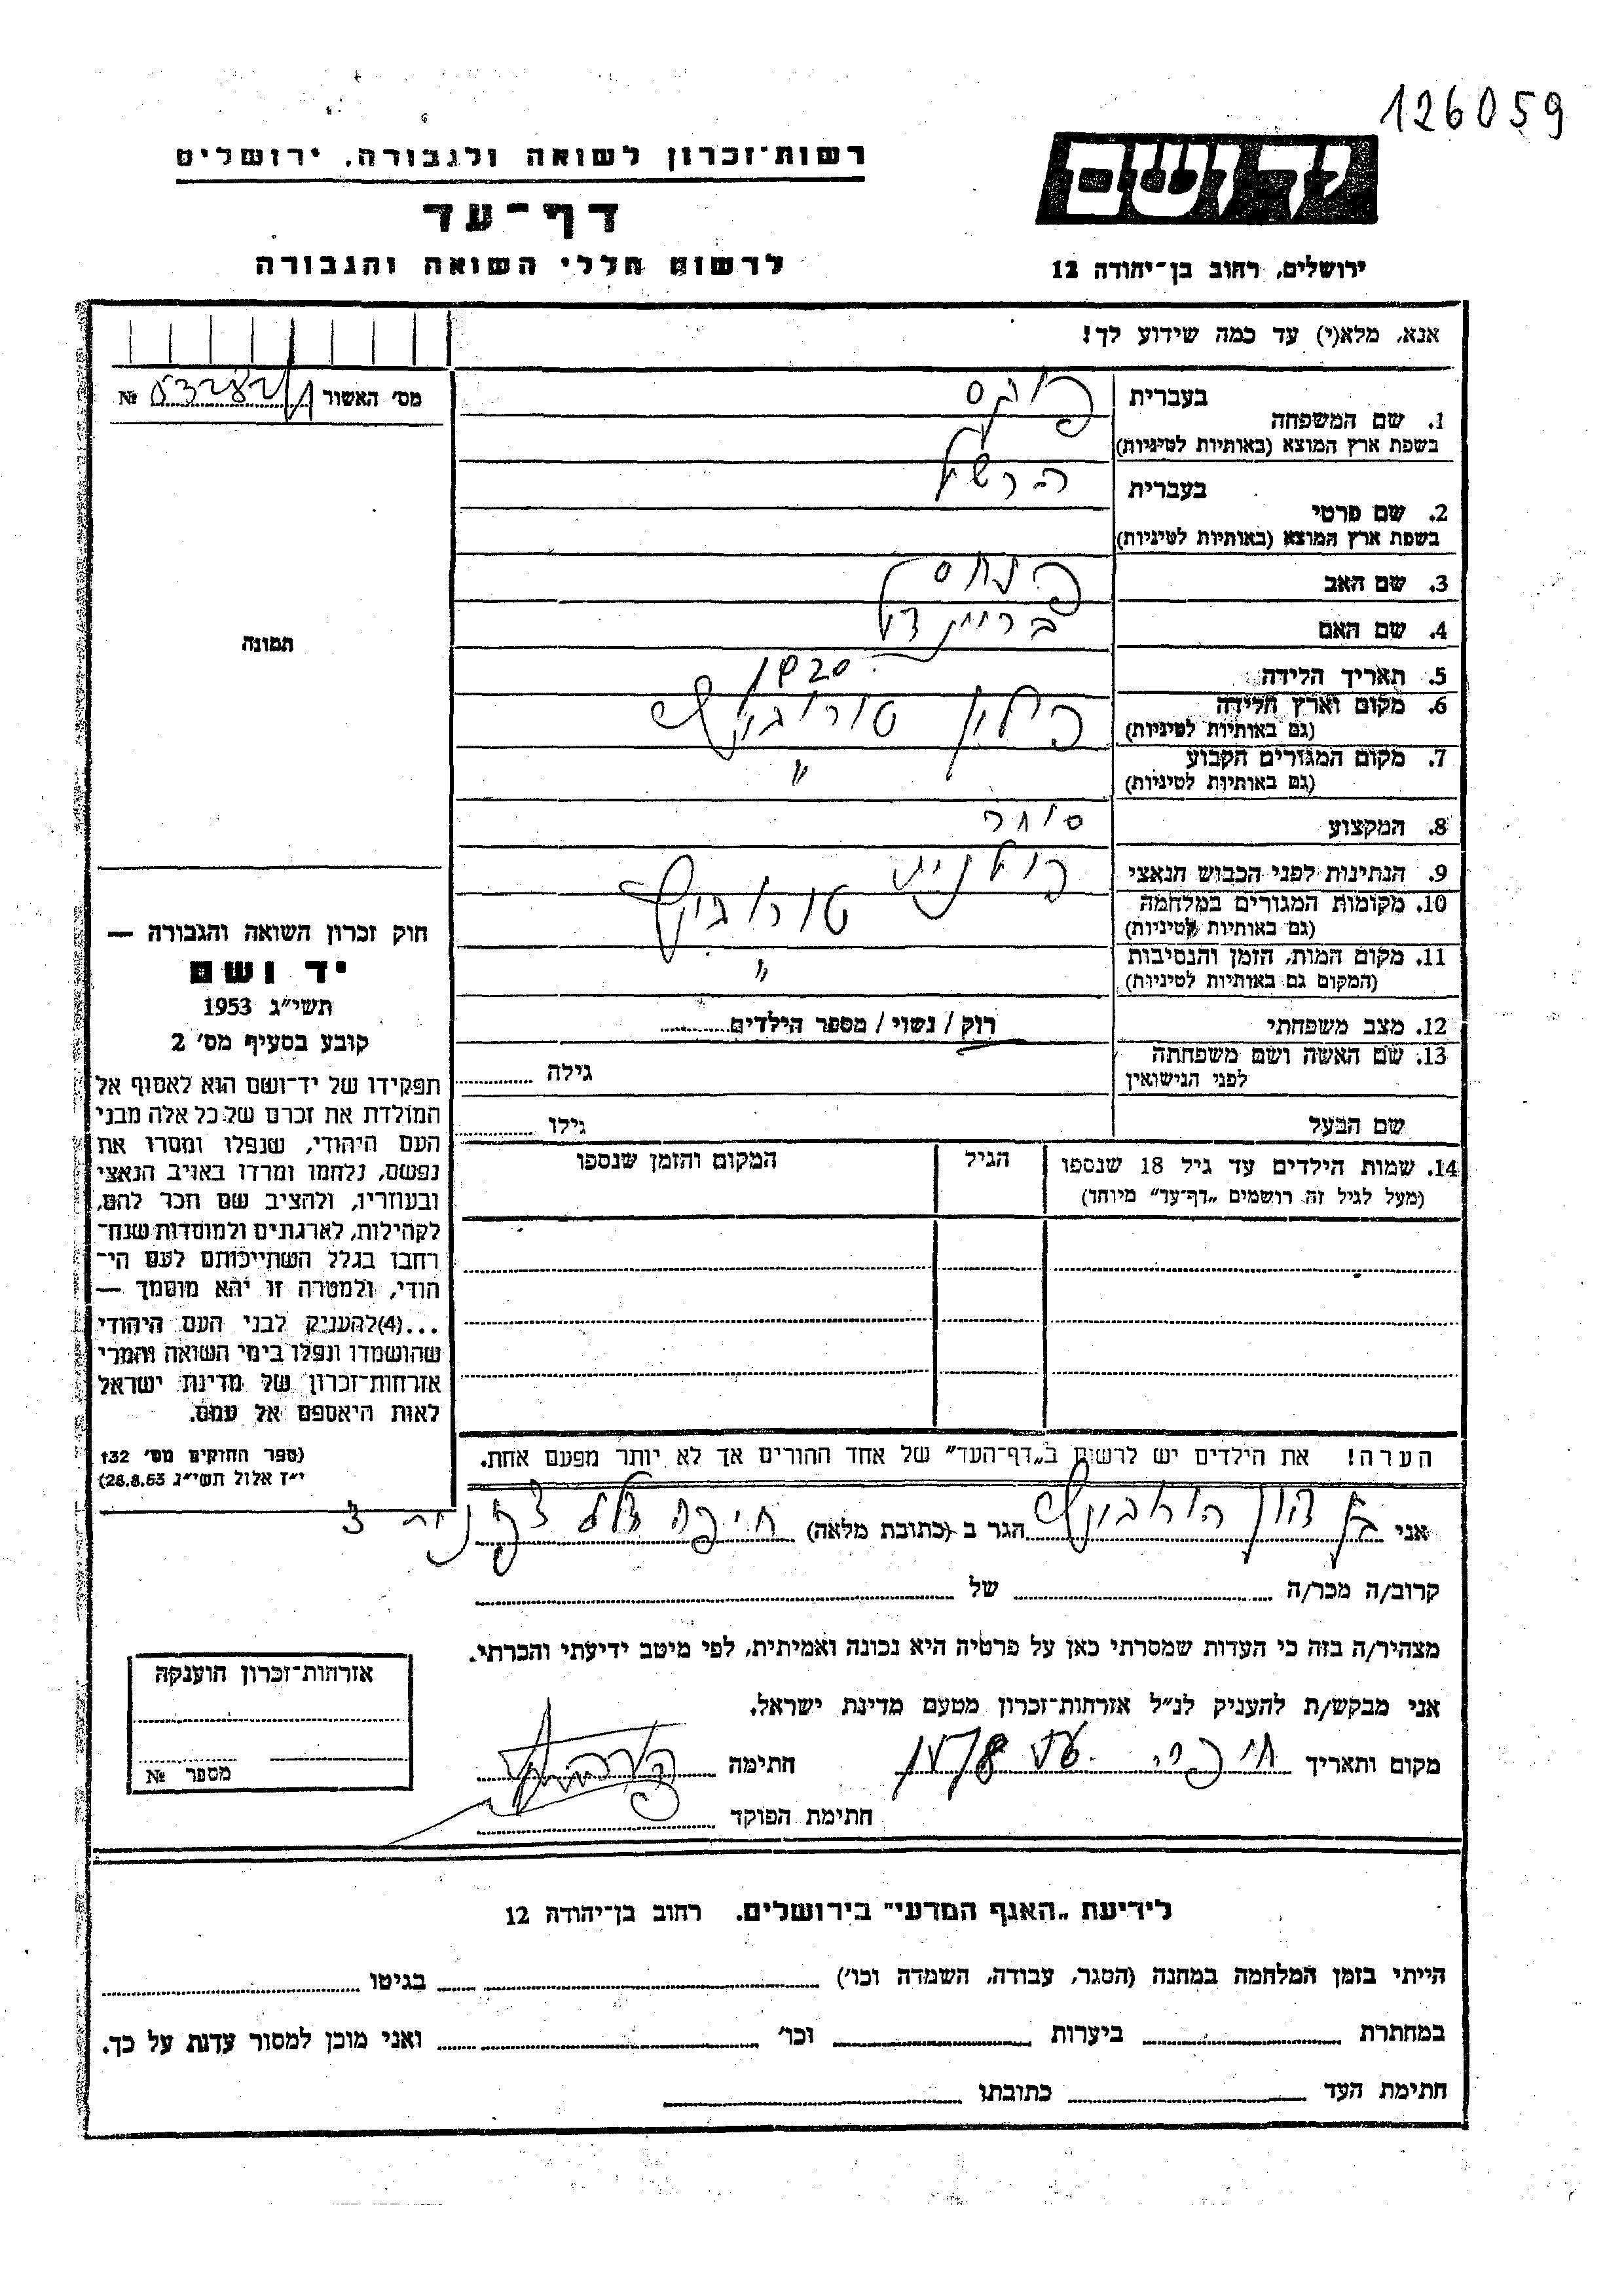 126059
יד ושם
ירושלים, רחוב בן-יהודה 12
רשות-זכרון לשואה ולגבורה, ירושלים
דף-עד
לרשום חללי השואה והגבורה
אנא, מלא(י) עד כמה שידוע לך!
מס' האשור №
1. שם המשפחה
בעברית פוקס
בשפת ארץ המוצא (באותיות לטיניות)
2. שם פרטי
בעברית הרשל
בשפת ארץ המוצא (באותיות לטיניות)
3. שם האב פנחס
4. שם האם ביינדל
5. תאריך הלידה
6. מקום וארץ הלידה
(גם באותיות לטיניות)
7. מקום המגורים הקבוע "
(גם באותיות לטיניות)
8. המקצוע סוחר
9. הנתינות לפני הכבוש הנאצי פולנית
10. מקומות המגורים במלחמה
(גם באותיות לטיניות)
11. מקום המות, הזמן והנסיבות "
(המקום גם באותיות לטיניות)
12. מצב משפחתי רוק / נשוי / מספר הילדים
13. שם האשה ושם משפחתה
לפני הנישואין
גילה
שם הבעל גילו
14. שמות הילדים עד גיל 18 שנספו
(מעל לגיל זה רושמים „דף-עד” מיוחד)
הגיל
המקום והזמן שנספו
הערה! את הילדים יש לרשום ב„דף-העד” של אחד ההורים אך לא יותר מפעם אחת.
תמונה
חוק זכרון השואה והגבורה —
יד ושם
תשי״ג 1953
קובע בסעיף מס' 2
תפקידו של יד-ושם הוא לאסוף אל
המולדת את זכרם של כל אלה מבני
העם היהודי, שנפלו ומסרו את
נפשם, נלחמו ומרדו באויב הנאצי
ובעוזריו, ולהציב שם וזכר להם,
לקהילות, לארגונים ולמוסדות שנח-
רבו בגלל השתייכותם לעם הי-
הודי, ולמטרה זו יהא מוסמך —
...(4)להעניק לבני העם היהודי
שהושמדו ונפלו בימי השואה והמרי
אזרחות-זכרון של מדינת ישראל
לאות היאספם אל עמם.
(ספר החוקים מס' 132
י״ז אלול תשי״ג 28.8.53)
אני הגר ב (כתובת מלאה) חיפה
קרוב/ה מכר/ה של
מצהיר/ה בזה כי העדות שמסרתי כאן על פרטיה היא נכונה ואמיתית, לפי מיטב ידיעתי והכרתי.
אני מבקש/ת להעניק לנ״ל אזרחות-זכרון מטעם מדינת ישראל.
מקום ותאריך חיפה חתימה
חתימת הפוקד
אזרחות-זכרון הוענקה
מספר №
לידיעת „האגף המדעי” בירושלים. רחוב בן-יהודה 12
הייתי בזמן המלחמה במחנה (הסגר, עבודה, השמדה וכו') בגיטו
במחתרת ביערות וכו' ואני מוכן למסור עדות על כך.
חתימת העד כתובתו